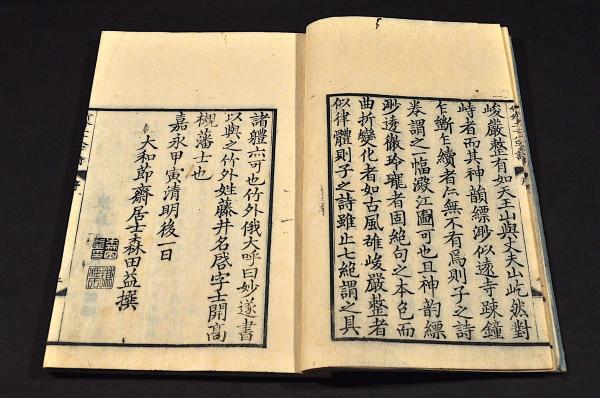 峻嚴整有如天王山與丈夫山屹然對
峙者而其神韻縹渺似遠寺疎鐘
乍斷乍續者亦無不有焉則子之詩
卷謂之一幅澱江圖可也且神韵縹
渺透徹玲瓏者固絶句之本色而
曲折變化者如古風雄峻嚴整者
似律體則子之詩雖止七絶謂之具
諸軆亦可也竹外俄大呼曰妙遂書
以與之竹外姓藤井名啓字士開高
槻藩士也
嘉永甲寅清明後一日
大和節齋居士森田益撰